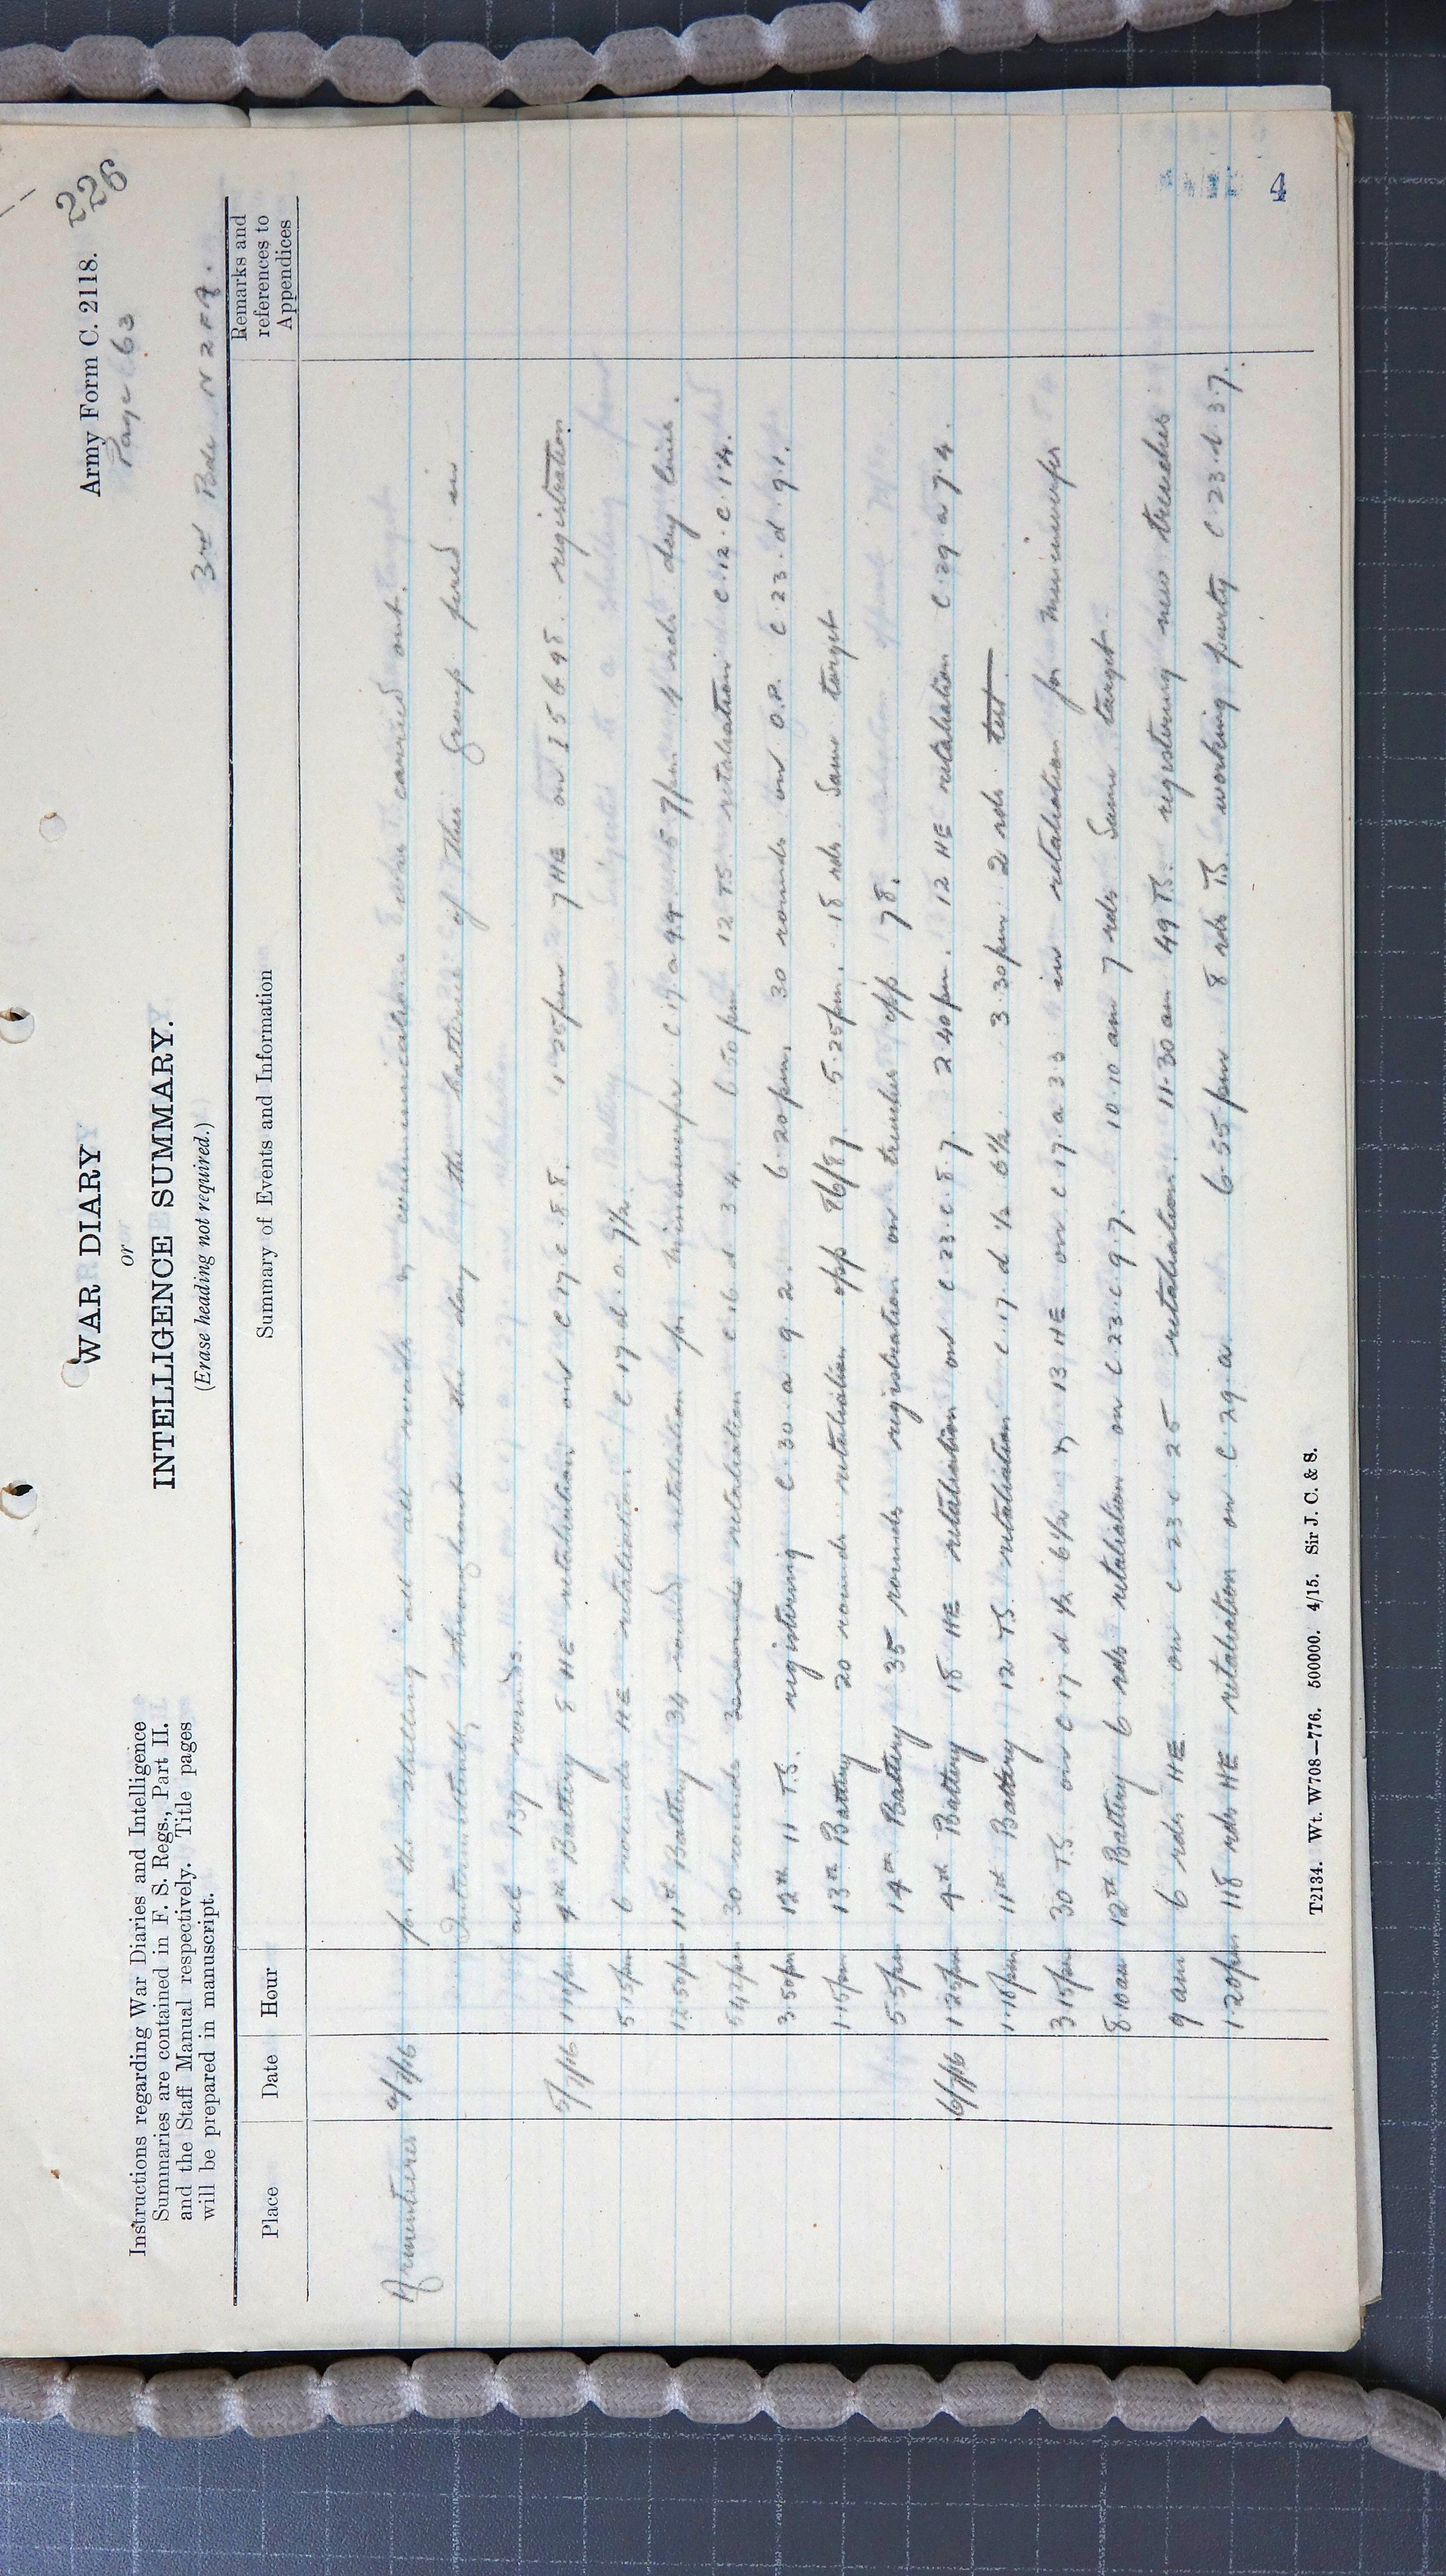 226
Army Form C. 2118.
Page 63
WAR DIARY
or
INTELLIGENCE SUMMARY.
(Erase heading not required.)
3rd Bde N Z F A.
Instructions regarding War Diaries and Intelligence
Summaries are contained in F. S. Regs., Part II.
and the Staff Manual respectively. Title pages
will be prepared in manuscript.
Place Date Hour Summary of Events and Information Remarks and references to Appendices
Armentieres 4/7/16 for the shelling of all roads & communications carried out.
Intermittently throughout the day the batteries of This Group fired in
all 139 rounds.
5/7/16 1.10pm 9th Battery 8 HE retaliation on C 17. c. 8.8. 1.25pm 7 HE on I 5 b 98. registration.
5.15pm 6 rounds HE retaliation C 17. d. 0. 7½.
12.50pm 11th Battery 34 rounds retaliation for Minenwerfer C 17 a 94. 5.7pm 4 rds day lines.
5.42pm 30 rounds retaliation C 16 d 3 4. 6.50pm 12 T.S. retaliation C. 12. c. 1.4.
3.50pm 12th 11 T.S. registering C. 30. a 9 2. 6.20pm. 30 rounds on O.P. C 23. d 9.1.
1.15pm 13th Battery 20 rounds retaliation opp 86/87. 5.25pm. 18 rds. Same target
5.5pm 14th Battery 35 rounds registration on trenches opp 78.
6/7/16 1.25pm 9th Battery 18 HE retaliation on C 23. c. 8. 7. 2 40pm. 12 HE retaliation C. 29. a 7. 4.
1.10pm 11th Battery 12 T.S. retaliation C. 17. d ½ 6½. 3.30pm. 2 rds test
3.15pm 30 T.S. on C 17 d ½ 6½ & 13 HE on C 17. a. 3 3 in retaliation for Minenwerfer
8.10am 12th Battery 6 rds retaliation on C 23. c. 9. 7. 10.10 am 7 rds Same target.
9 am 6 rds HE on C 23 c 25 retaliation. 11.30 am 49 T.S. registering new trenches
1.20pm 118 rds HE retaliation on C. 29. a. 6.55pm 8 rds T.S. working party C. 23. d. 3.7.
T2134. Wt. W708—776. 500000. 4/15. Sir J. C. & S.
4